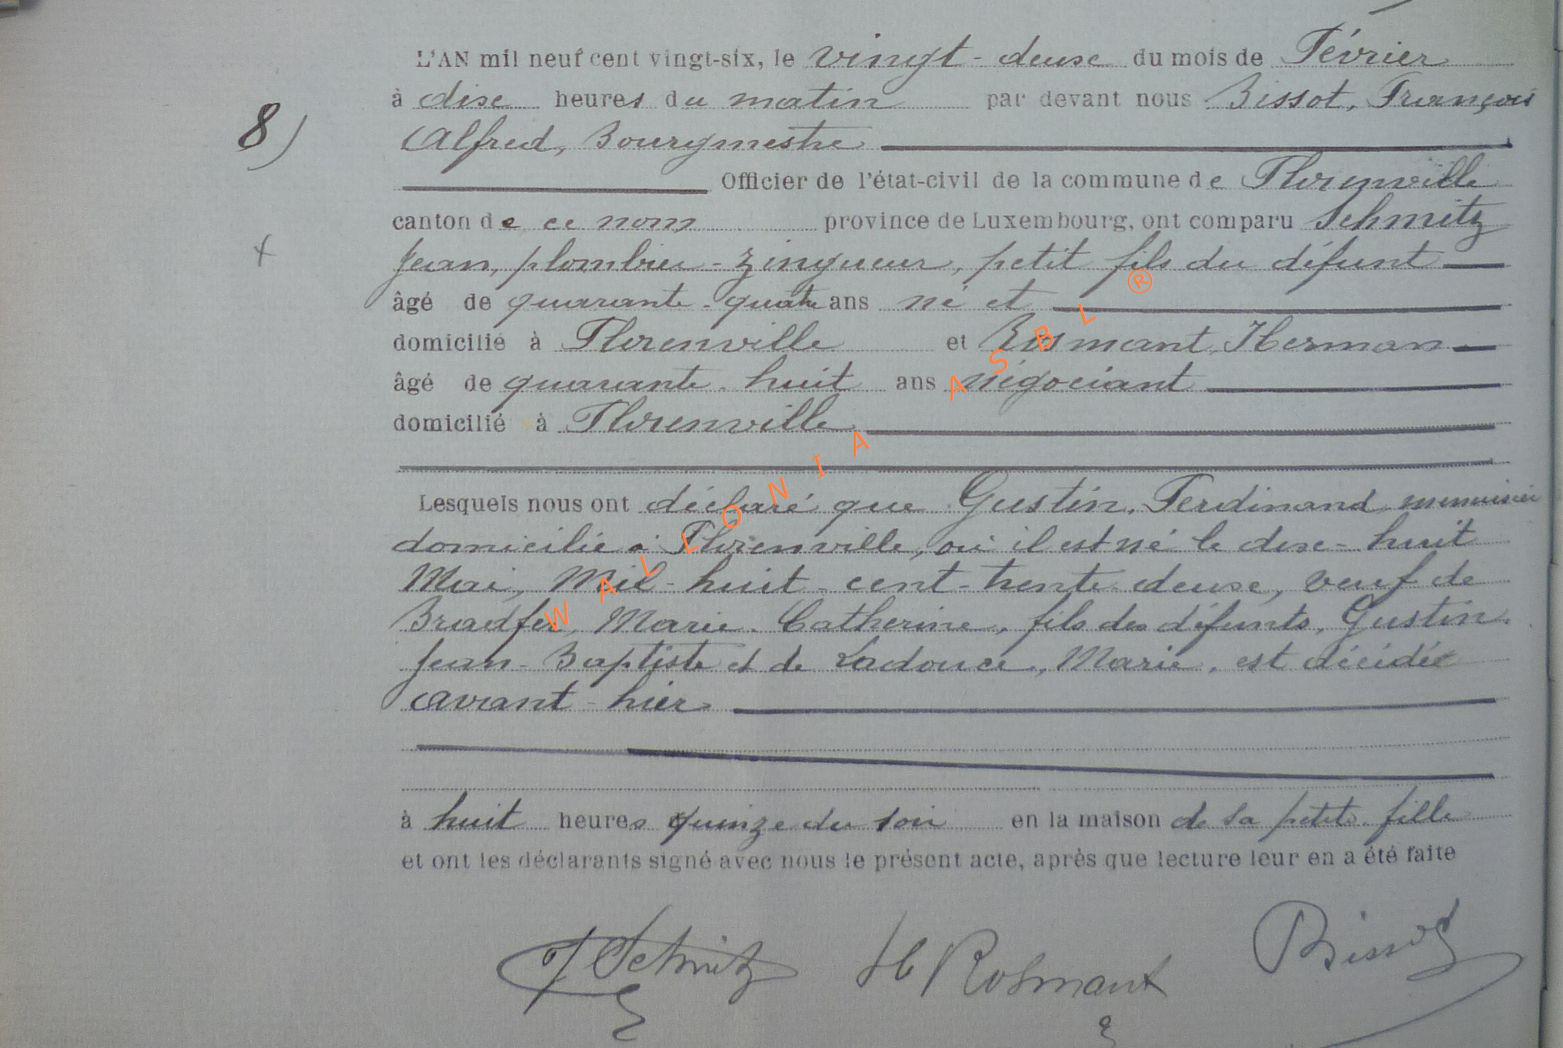 L'AN mil neuf cent vingt-six, le vingt-deux du mois de Février
à dix heures du matin par devant nous Bissot, François
8) Alfred, Bourgmestre
Officier de l'état-civil de la commune de Florenville
canton de ce nom province de Luxembourg, ont comparu Schmitz
Jean, plombier-zingueur, petit fils du défunt
âgé de quarante-quatre ans né et
domicilié à Florenville et Rosmant, Herman
âgé de quarante-huit ans négociant
domicilié à Florenville
Lesquels nous ont déclaré que Gustin, Ferdinand menuisier
domicilié à Florenville, où il est né le dix-huit
Mai, Mil-huit-cent-trente deux, veuf de
Marie Catherine, fils des défunts, Gustin
Jean-Baptiste et de Ladouce, Marie, est décédé
avant-hier
à huit heures quinze du soir en la maison de sa petite fille
et ont les déclarants signé avec nous le présent acte, après que lecture leur en a été faite
J Schmitz H Rosmant Bissot
WALLONIA ASBL ®